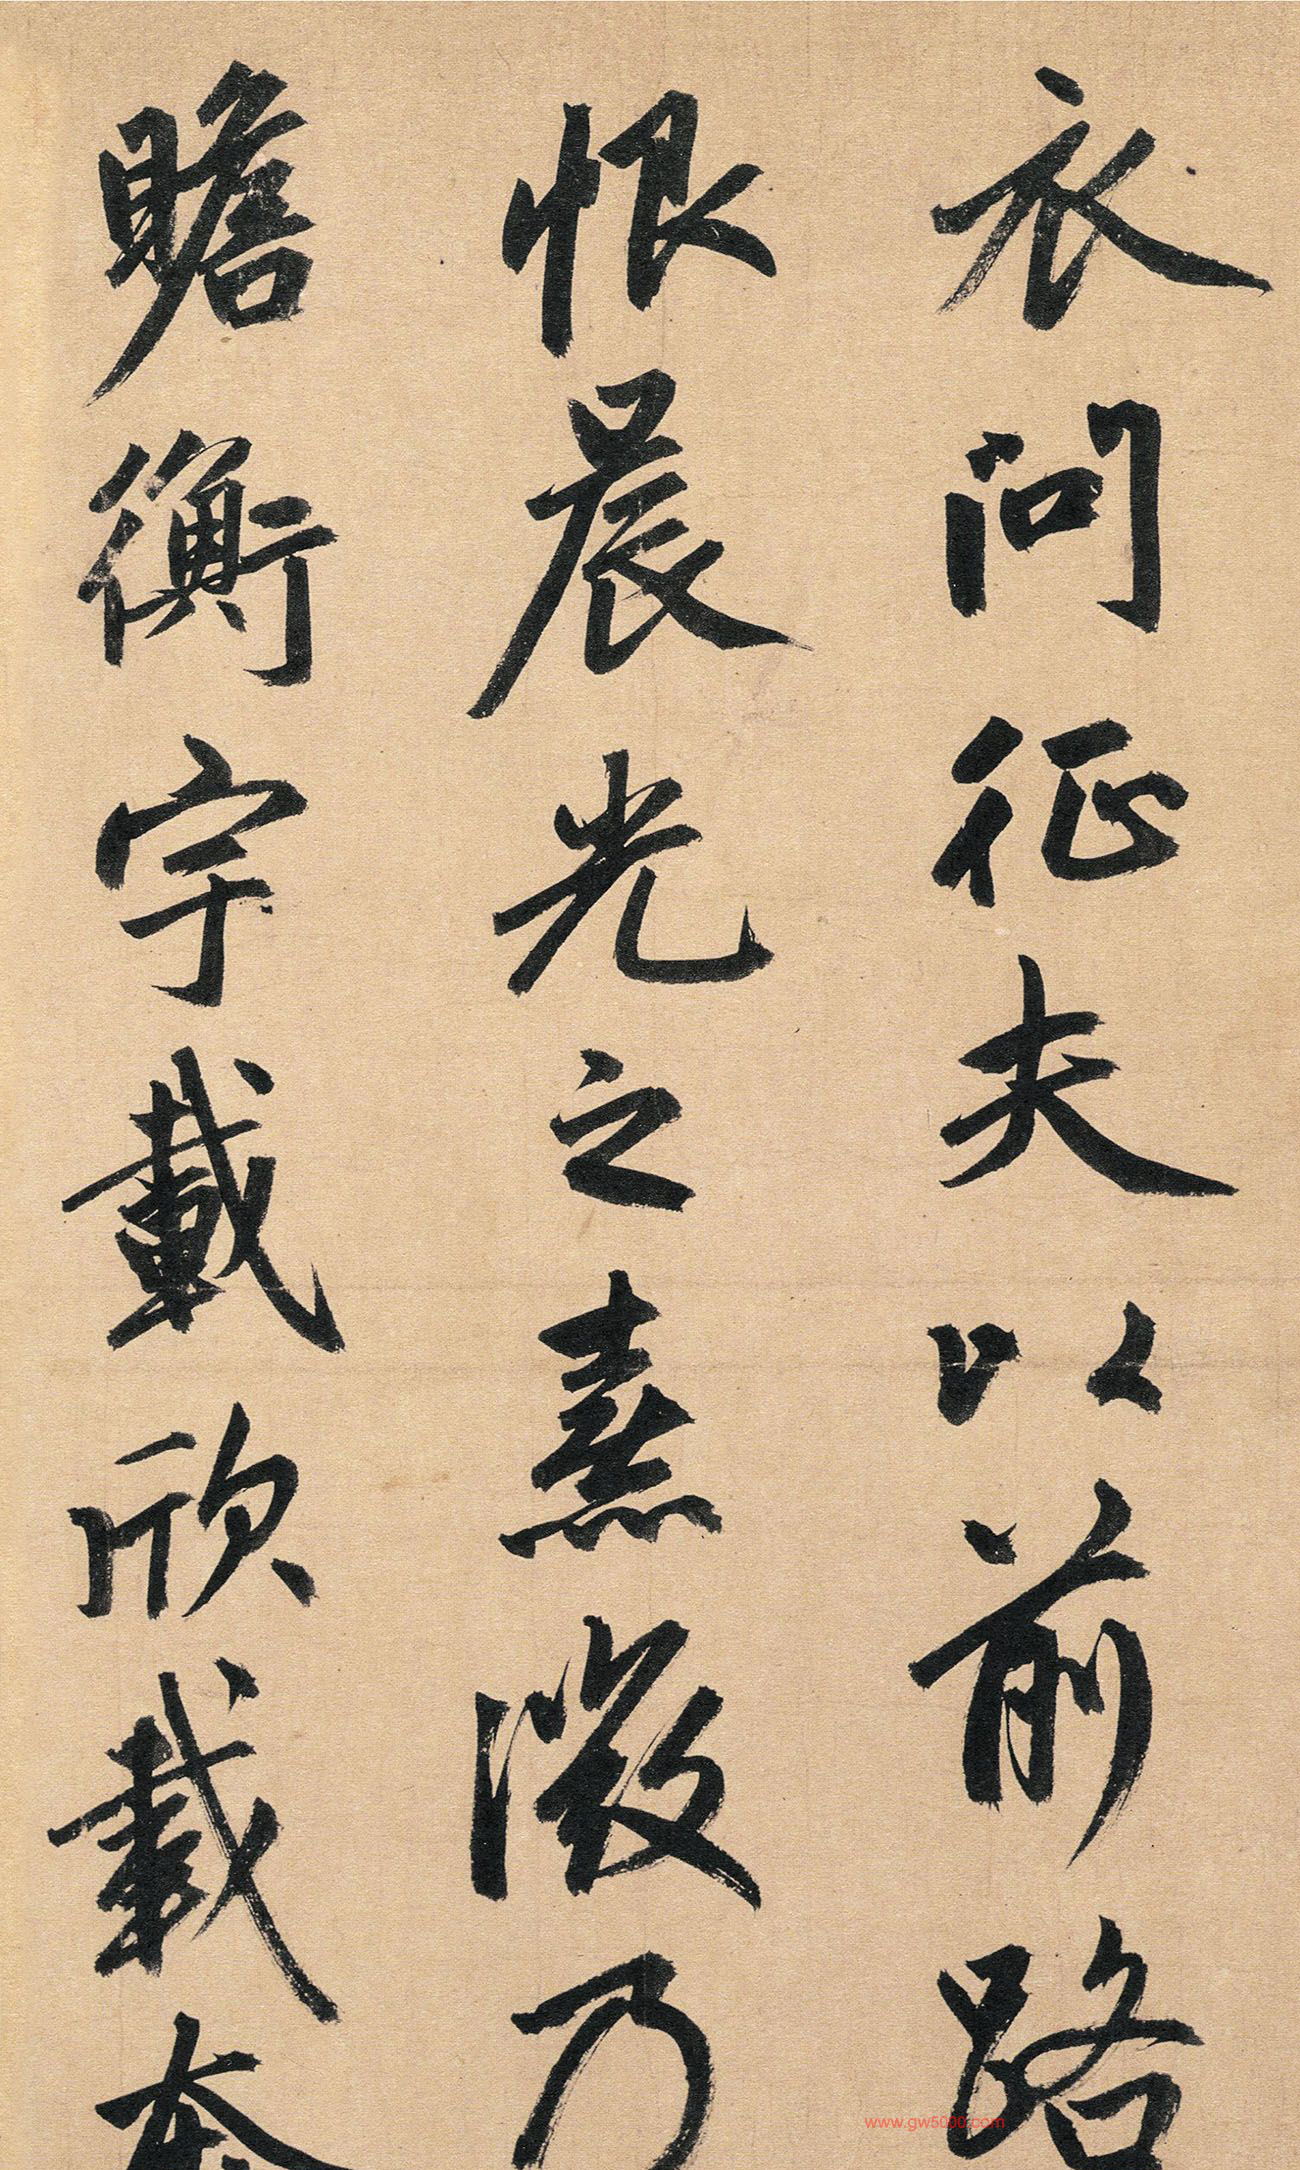 衣問征夫以前路
恨晨光之熹微乃
瞻衡宇載欣載奔
www.gw5000.com